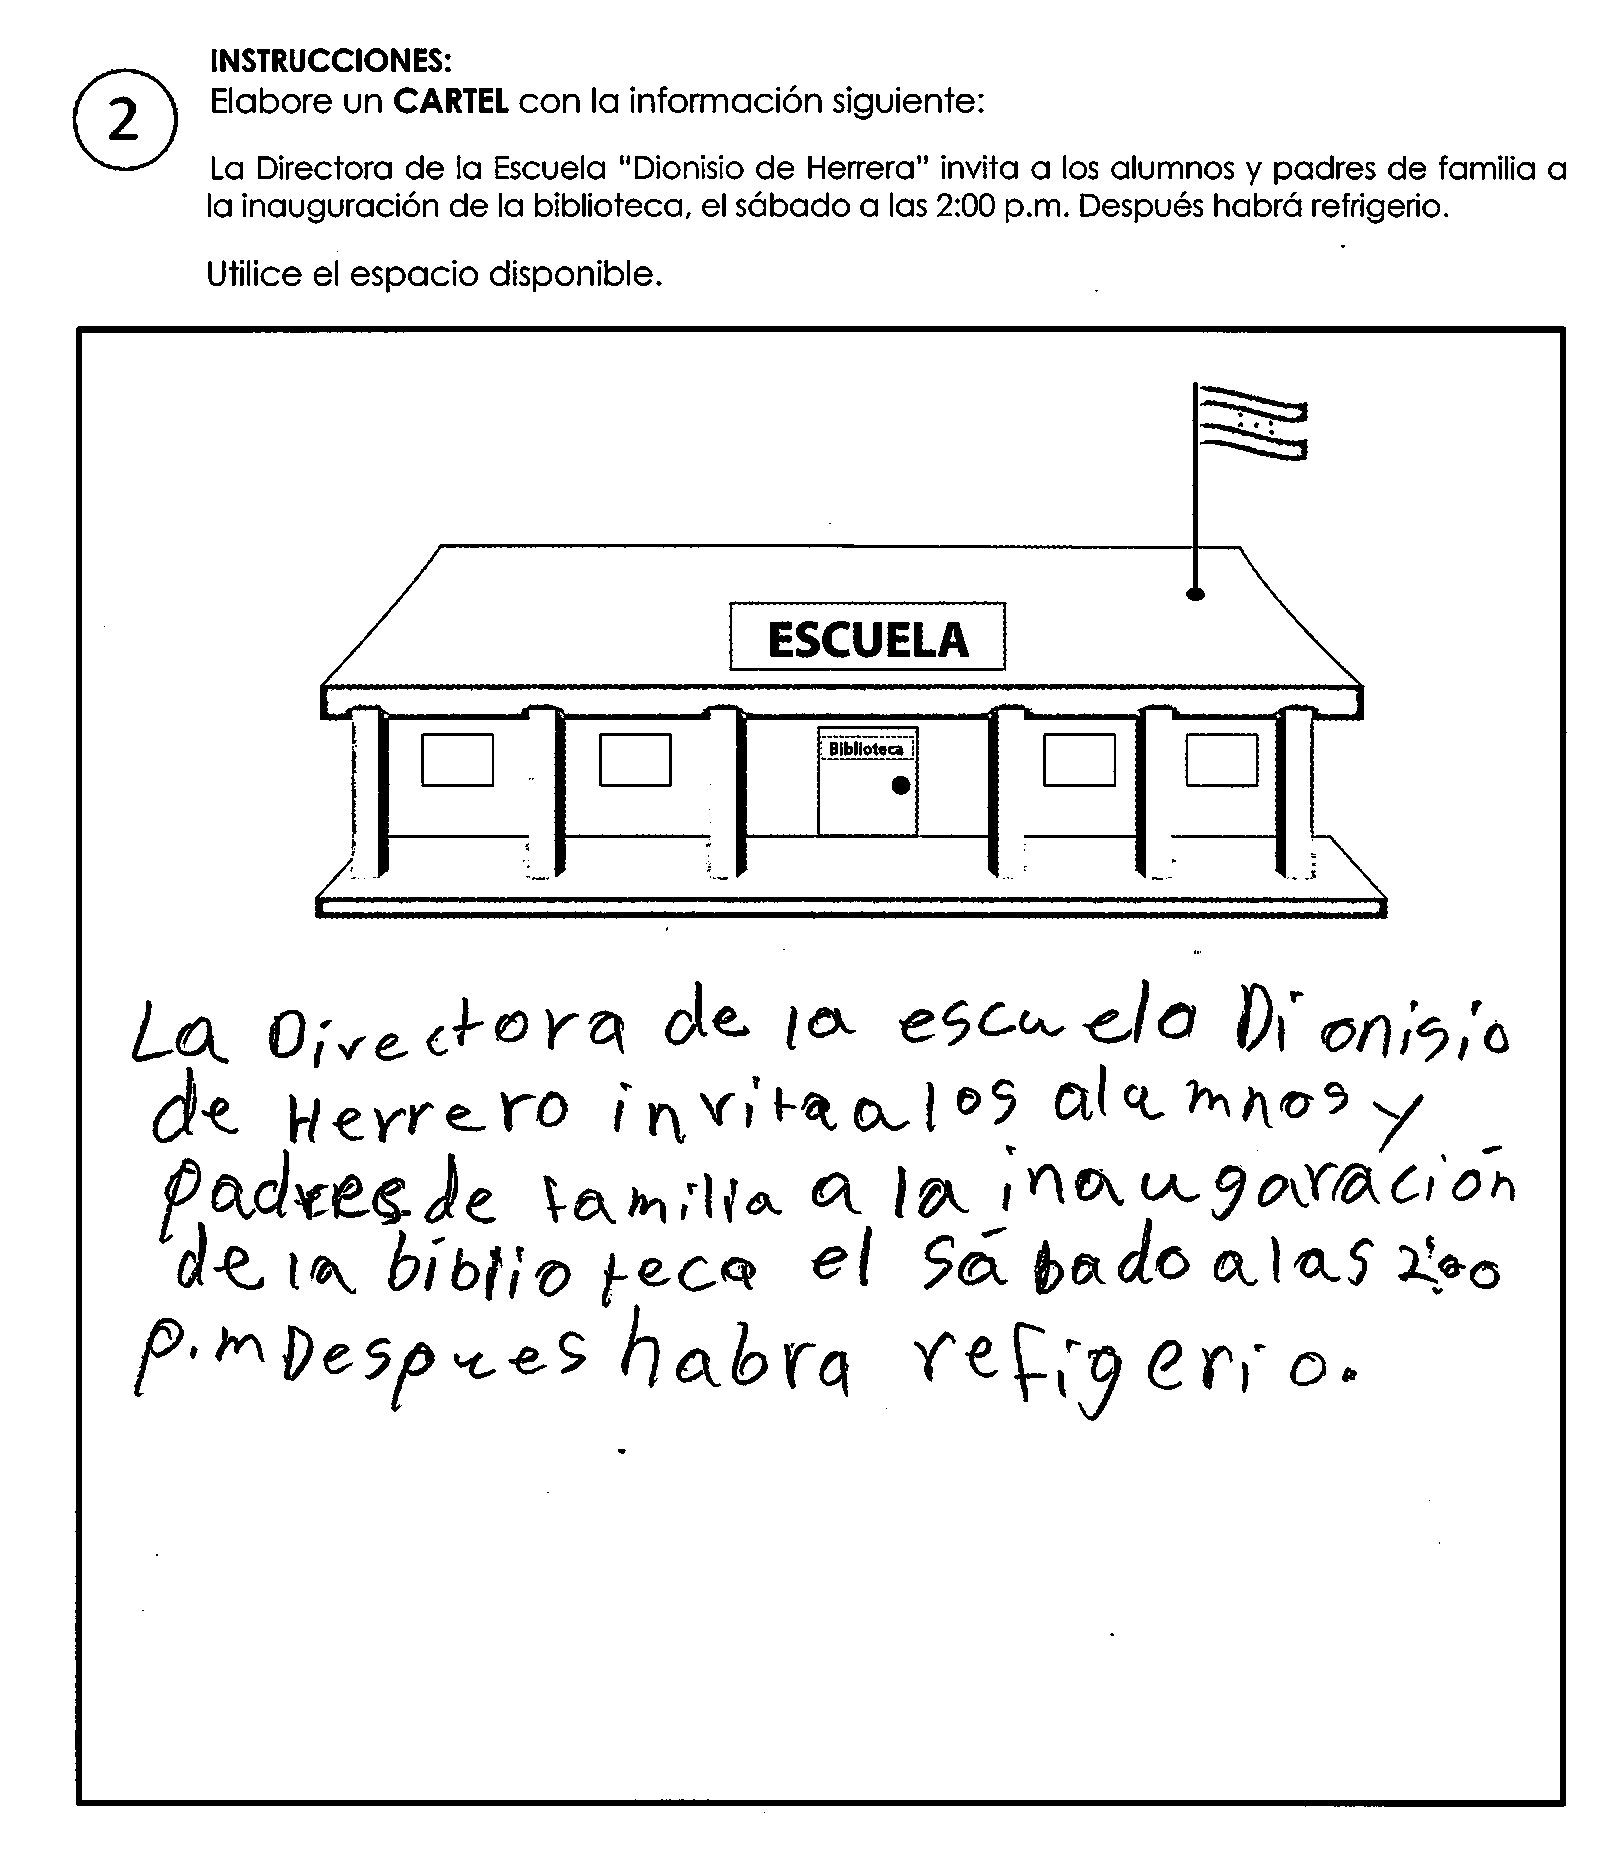 INSTRUCCIONES:
2
Elabore un CARTEL con la información siguiente:
La Directora de la Escuela "Dionisio de Herrera" invita a los alumnos y padres de familia a
la inauguración de la biblioteca, el sábado a las 2:00 p.m. Después habrá refrigerio.
Utilice el espacio disponible.
ESCUELA
Biblioteca
La Directora de la escuela Dionisio
de Herrero invita a los alumnos y
padres de familia a la inaugaración
de la biblioteca el sábado a las 2:00
p.m Despues habra refigerio.